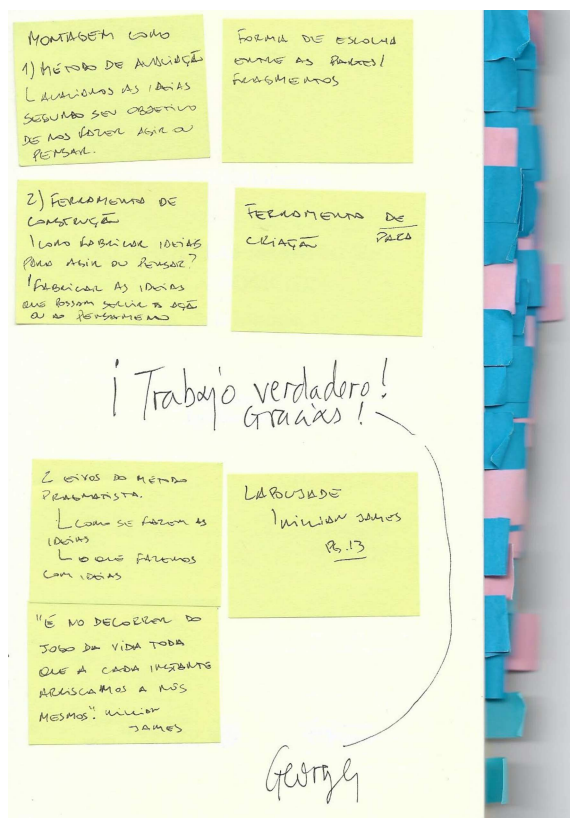 MONTAGEM COMO
1) MÉTODO DE AVALIAÇÃO
L AVALIAMOS AS IDEIAS
SEGUNDO SEU OBJETIVO
DE NOS FAZER AGIR OU
PENSAR.
FORMA DE ESCOLHA
ENTRE AS PARTES/
FRAGMENTOS
2) FERRAMENTA DE
CONSTRUÇÃO
COMO FABRICAR IDEIAS
PARA AGIR OU PENSAR?
FABRICAR AS IDEIAS
QUE POSSAM SERVIR A AÇÃO
OU AO PENSAMENTO
FERRAMENTA DE
CRIAÇÃO PARA
¡Trabajo verdadero!
Gracias!
2 EIXOS DO MÉTODO
PRAGMATISTA.
L COMO SE FAZEM AS
IDEIAS
L O QUE FAZEMOS
COM IDEIAS
LAPOUJADE
WILLIAN JAMES
PG.13
"É NO DECORRER DO
JOGO DA VIDA TODA
QUE A CADA INSTANTE
ARRISCAMOS A NÓS
MESMOS". WILLIAN
JAMES
George